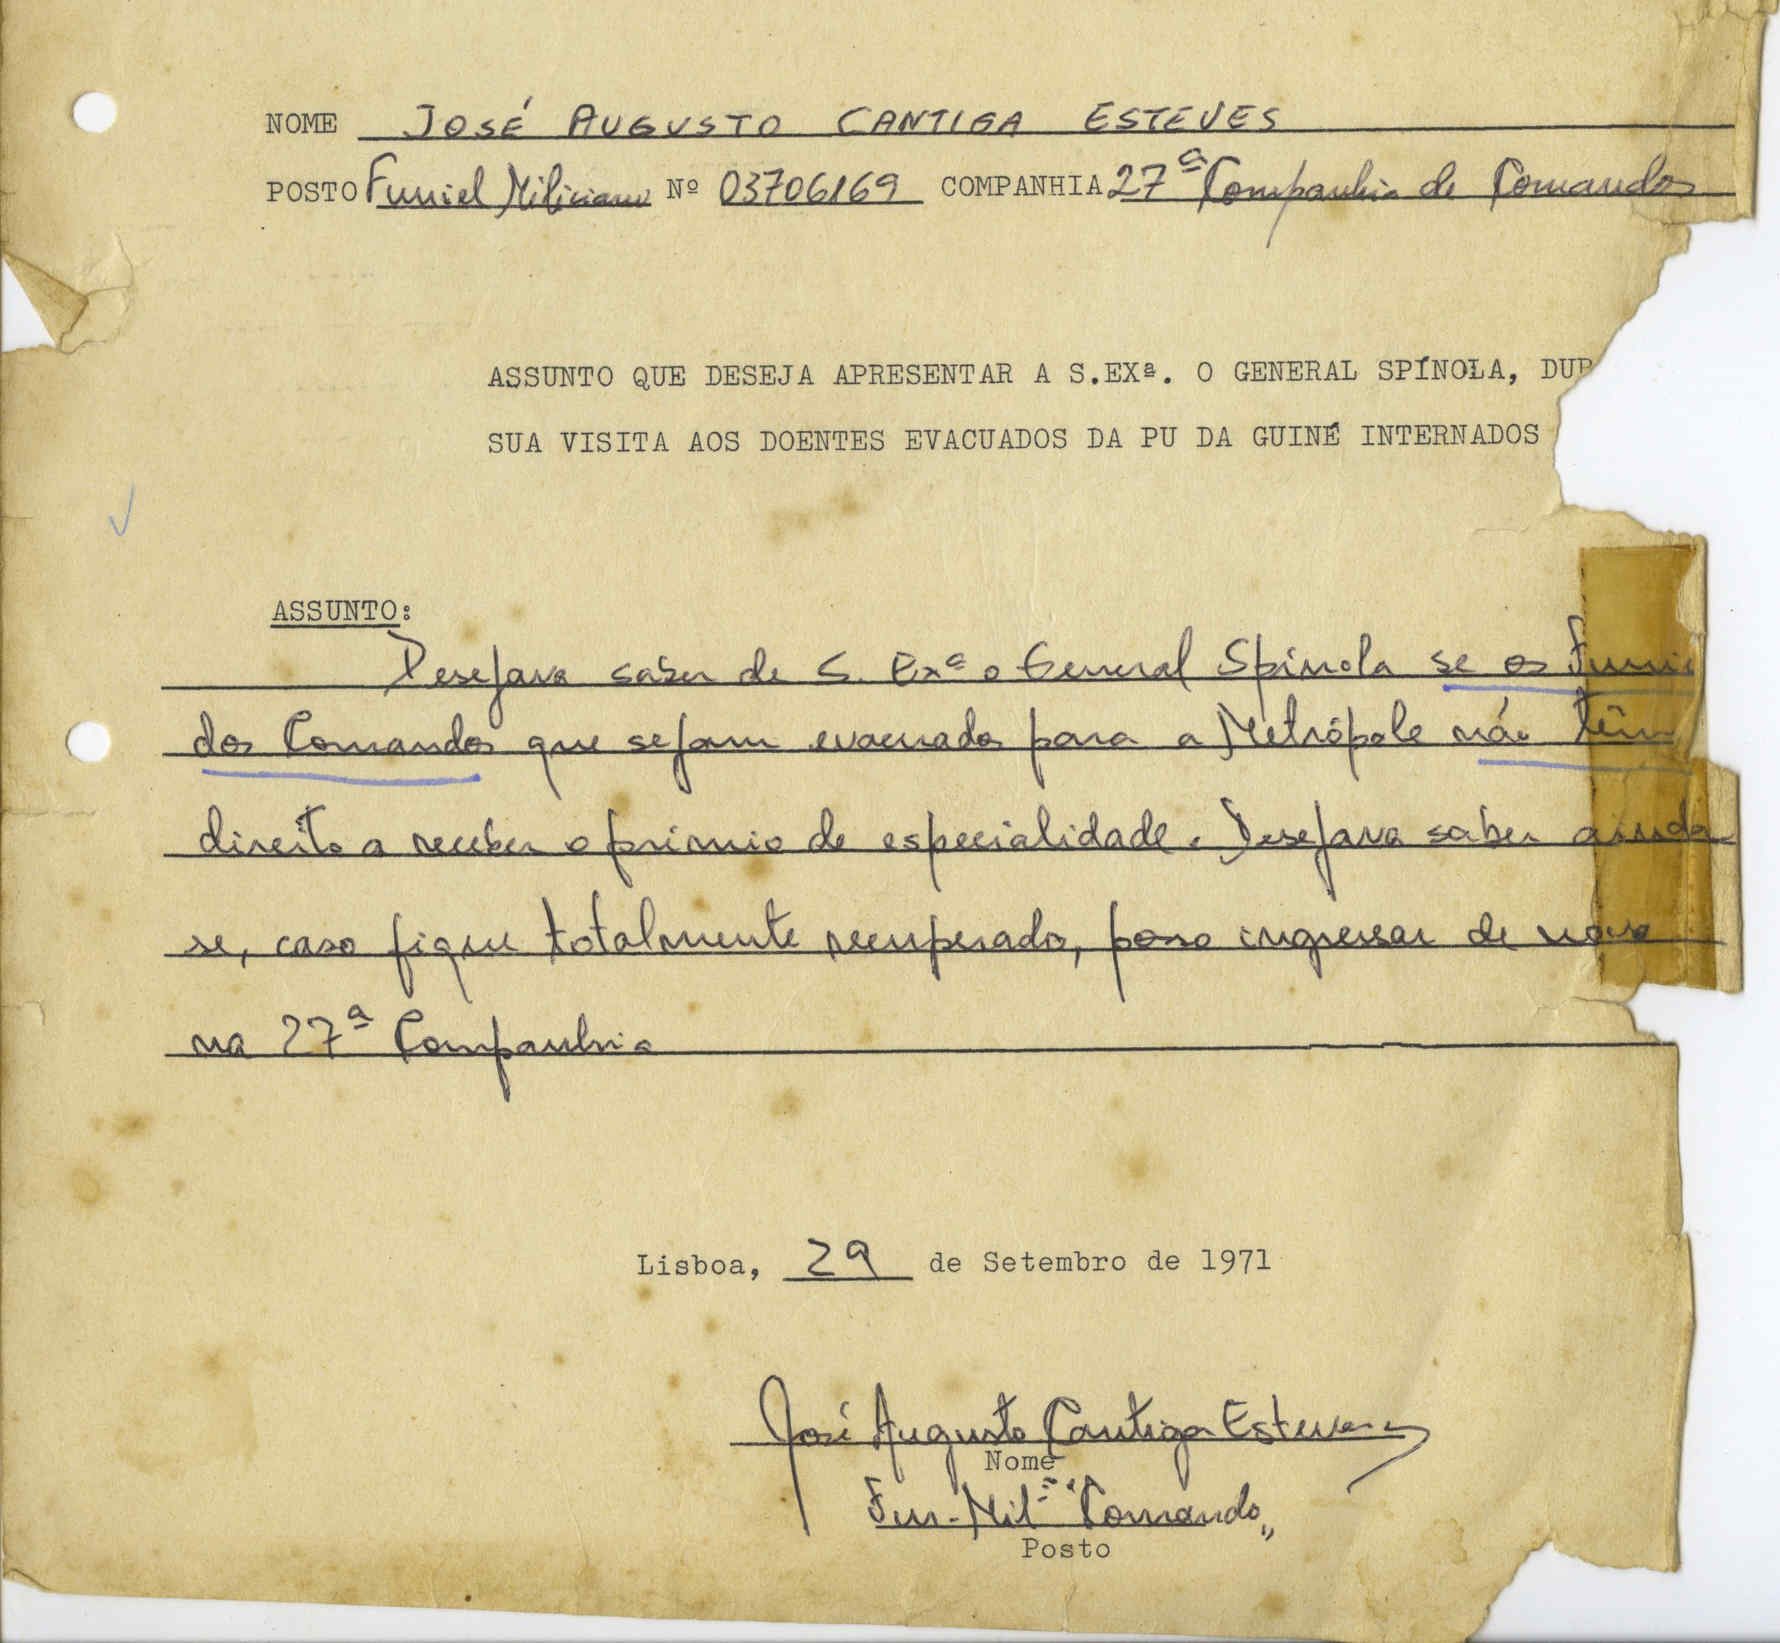 NOME JOSÉ AUGUSTO CANTIGA ESTEVES
POSTO Furriel Miliciano Nº 03706169 COMPANHIA 27ª Companhia de Comandos
ASSUNTO QUE DESEJA APRESENTAR A S.EXª. O GENERAL SPÍNOLA,
SUA VISITA AOS DOENTES EVACUADOS DA PU DA GUINÉ INTERNADOS
ASSUNTO:
Desejava saber de S. Exª o General Spínola se os
dos Comandos que sejam evacuados para a Metrópole não têm
direito a receber o prémio de especialidade. Desejava saber ainda
se, caso fique totalmente recuperado, posso ingressar de novo
na 27ª Companhia
Lisboa, 29 de Setembro de 1971
José Augusto Cantiga Esteves
Nome
Fur. Milº "Comando"
Posto